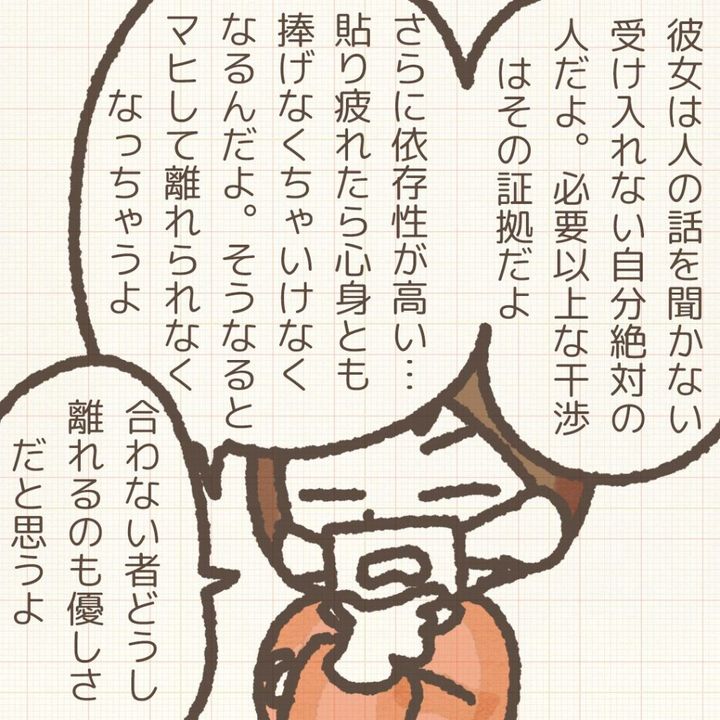 彼女は人の話を聞かない
受け入れない自分絶対の
人だよ。必要以上な干渉
はその証拠だよ
さらに依存性が高い…
貼り疲れたら心身とも
捧げなくちゃいけなく
なるんだよ。そうなると
マヒして離れられなく
なっちゃうよ
合わない者どうし
離れるのも優しさ
だと思うよ